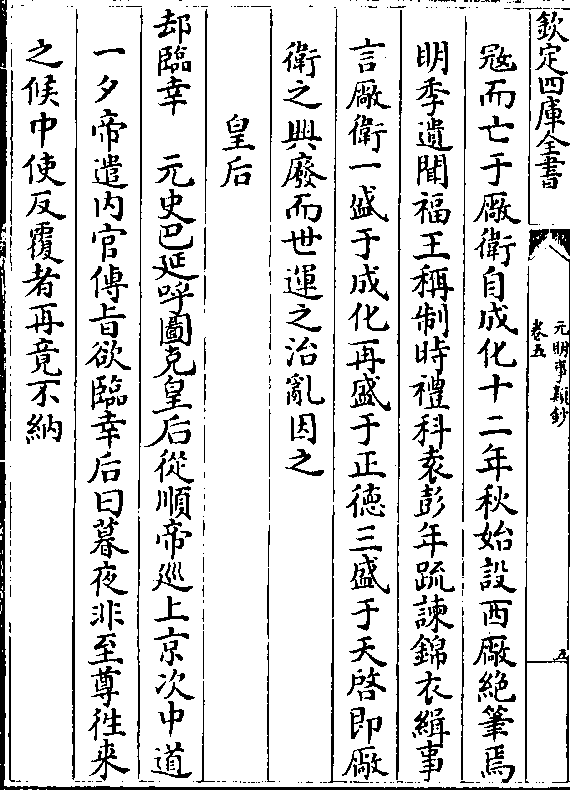 欽定四庫全書
元明事類鈔
卷五
五
冦而亡于厰衛自成化十二年秋始設西厰絶筆焉
明季遺聞福王稱制時禮科袁彭年䟽諫錦衣緝事
言厰衛一盛于成化再盛于正德三盛于天啓即厰
衛之興廢而世運之治亂因之
皇后
却臨幸 元史巴延呼圖克皇后從順帝廵上京次中道
一夕帝遣内官傳旨欲臨幸后曰暮夜非至尊徃来
之候中使反覆者再竟不納